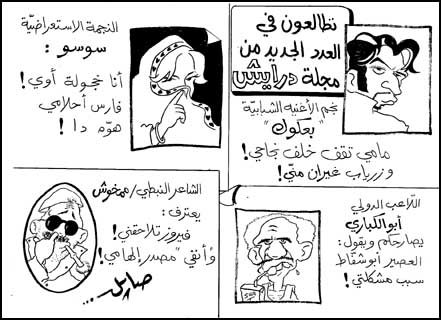 نطالعون في
العدد الجديد من
مجلة درايش
نجم الأغنية الشبابيّة
"بعكوك"
مامي تقف خلف نجاحي!
وزرياب غيران منّي!
النجمة الاستعراضيّة
سوسو :
أنا خجولة أوي!
فارس أحلامي
هوّه دا !
اللاعب الدولي
أبو الكباري
يصارحكم ويقول:
العصير أبو شفّاط
سبب مشكلتي!
الشاعر النبطي/ ممخوش
يعترف:
فيروز تلاحقني!
وأنفي "مصدر إلهامي!